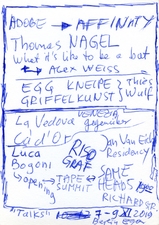 ADOBE → AFFINITY
Thomas NAGEL
What it's like to be a bat
← ALEX WEISS
EGG KNEIPE } Thies
GRIFFELKUNST } Wulf
La Vedova VENEZIA
Ca d'Or
Luca
Bogoni
RISO
GRAF
Jan Van Eyck
Residency
→ opening
→ TAPE ← SAME
SUMMIT HEADS
RICHARD GR.
"Talks"
7-9 XI 2019